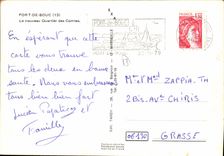 PORT-DE-BOUC (13)
Le nouveau Quartier des Comtes.
En espérant que cette
carte vous trouve
tous les deux en bonne
santé. Nous vous embrassons
tous bien fort
Famille
Mr et Mme ZAPPIA TH
2 BIS. AV CHIRIS
06130 GRASSE